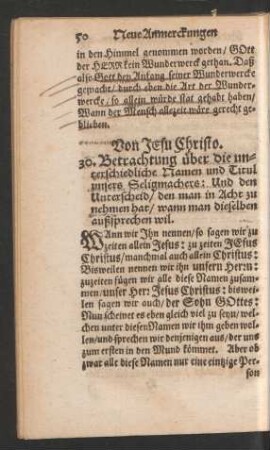 50 Neue Anmerckungen
in den Himmel genommen worden/ GOtt
der HERR ein Wunderwerck gethan. Daß
also Gott den Anfang seiner Wunderwercke
gemacht/ durch eben die Art der Wunder-
wercke/ so allein würde stat gehabt haben/
Wann der Mensch allezeit wäre gerecht ge-
blieben.
Von Jesu Christo.
30. Betrachtung über die un-
terschiedliche Namen und Titul
unsers Seligmachers: Und den
Unterscheid/ den man in Acht zu
nehmen hat/ wann man dieselben
außsprechen wil.
WAnn wir Ihn nennen/ so sagen wir zu
zeiten allein Jesus: zu zeiten JEsus
Christus/ manchmal auch allein Christus:
Bisweilen nennen wir ihn unsern Herrn:
zuzeiten fügen wir alle diese Namen zusam-
men/ unser Herr Jesus Christus: biswei-
len sagen wir auch/ der Sohn GOttes:
Nun scheinet es eben gleich viel zu seyn/ wel-
chen unter diesen Namen wir ihm geben wol-
len/ und sprechen wir denjenigen aus/ der uns
zum ersten in den Mund kömmet. Aber ob
zwar alle diese Namen nur eine eintzige Per-
son